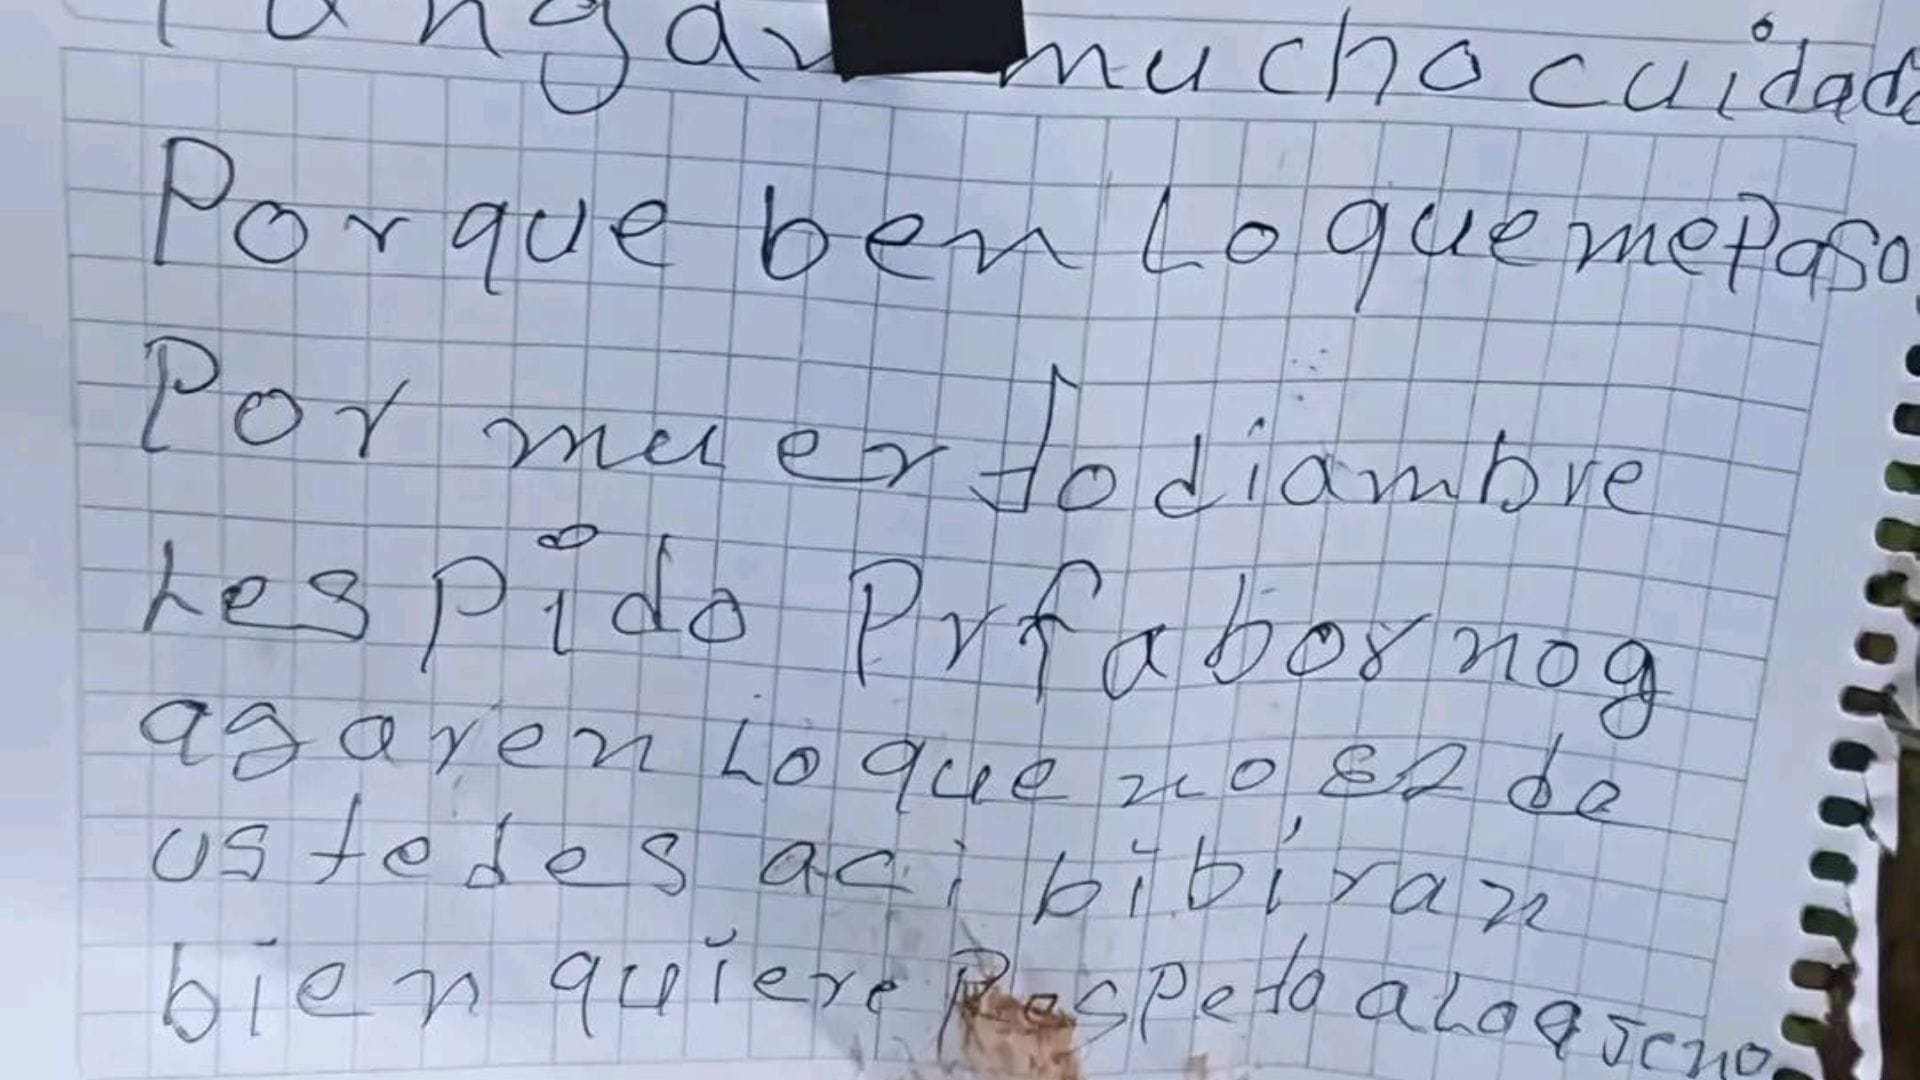 Tangan mucho cuidado
Porque ben Lo quemePaso
Por muertodiambre
Les Pido Prfabor nog
agaren Lo que no es de
ustedes aci bibiran
bien quiere Respeto aLoageno